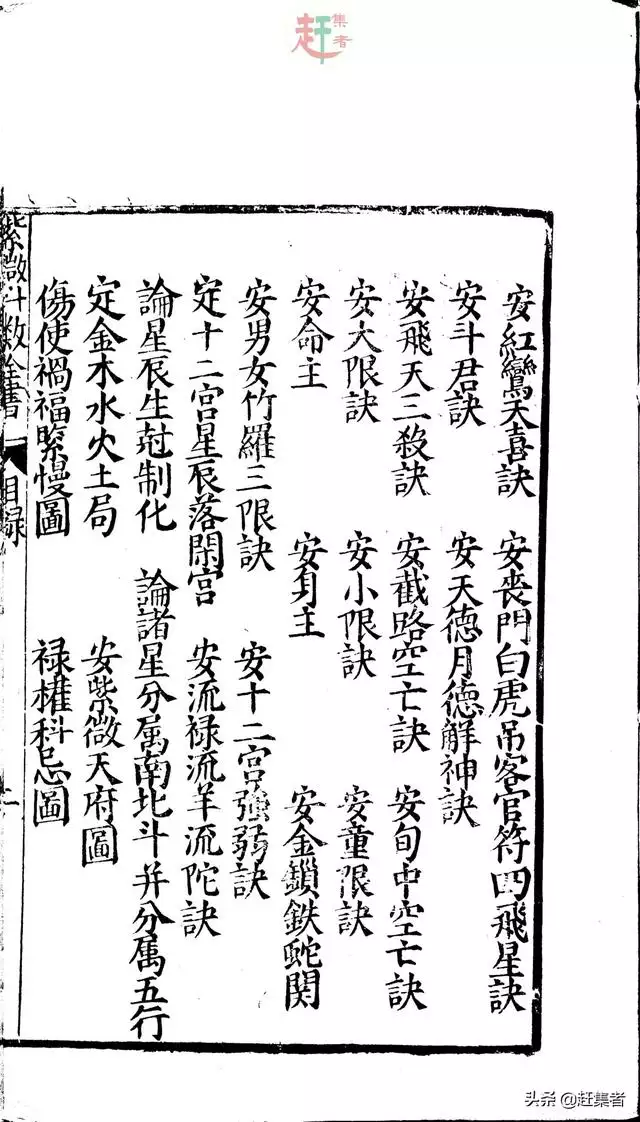 赶集者
安紅鸞天喜訣　安喪門白虎吊客官符四飛星訣
安斗君訣　安天德月德解神訣
安飛天三殺訣　安截路空亡訣　安旬中空亡訣
安大限訣　安小限訣　安童限訣
安命主　安身主　安金鎖鉄蛇関
安男女竹羅三限訣　安十二宮強弱訣
定十二宮星辰落閑宮　安流禄流羊流陀訣
論星辰生尅制化　論諸星分属南北斗并分属五行
定金木水火土局　安紫微天府圖
傷使禍福緊慢圖　禄權科忌圖
紫微斗数全書　目録　一
头条 @赶集者